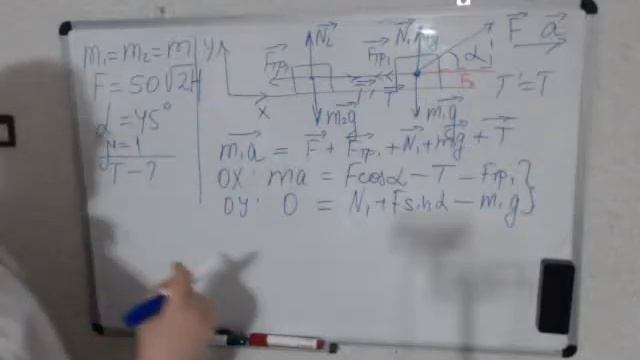 m₁ = m₂ = m
F = 50√2 H
α = 45°
T - ?
y
x
N₂
Fтр₂
m₂g
T'
T
N₁
Fтр₁
m₁g
α
F
a
T' = T
m₁a = F + Fтр₁ + N₁ + m₁g + T
OX: ma = Fcosα - T - Fтр₁
OY: 0 = N₁ + Fsinα - m₁g